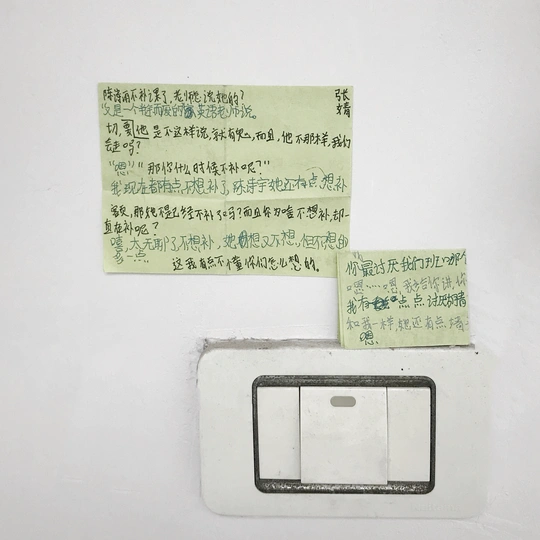 陈诗雨不补课了,老师怎说她的?
张婧
又是一个特可爱的 英语老师说。
切,要他是不这样说,就有鬼,而且,他不那样,我们
会走吗?
“嗯”“那你什么时候不补呢?”
我现在都有点不想补了,陈诗宇她还有点想补
,那她不是已经不补了吗?而且你为啥不想补,却一
直在补呢?
嘻,太无聊了不想补,她 想又不想,但不想的
多一点。
这我有点不懂你们怎么想的。
你最讨厌我们班上哪个
嗯……嗯,我 给你讲,你
我有 点点讨厌 婧
和我一样,她还有点
嗯